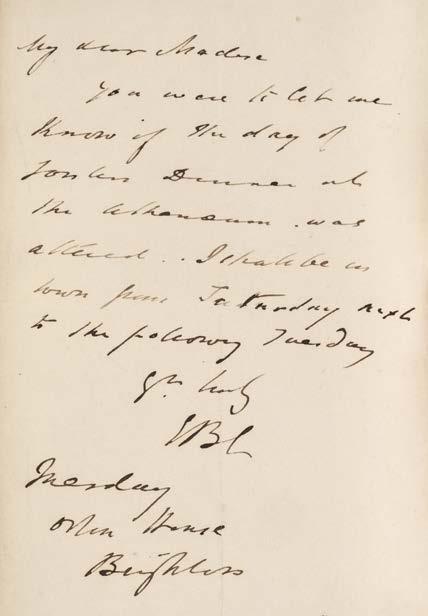 My dear Maclise
You were to let me
Know if the day of
Forsters Dinner at
the Atheneum was
altered. I shall be in
town from Saturday next
to the following Tuesday
Yrs truly
EBL
Tuesday
House
Brighton